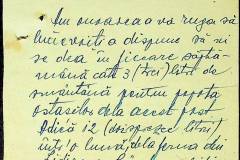 Am onoarea a vă ruga să
binevoiți a dispune să ni
se dea în fiecare săptă-
mână câte 3 (trei) litri de
smântână pentru popota
ostașilor dela acest post
adică 12 (doisprezece litri)
într'o lună, dela ferma din